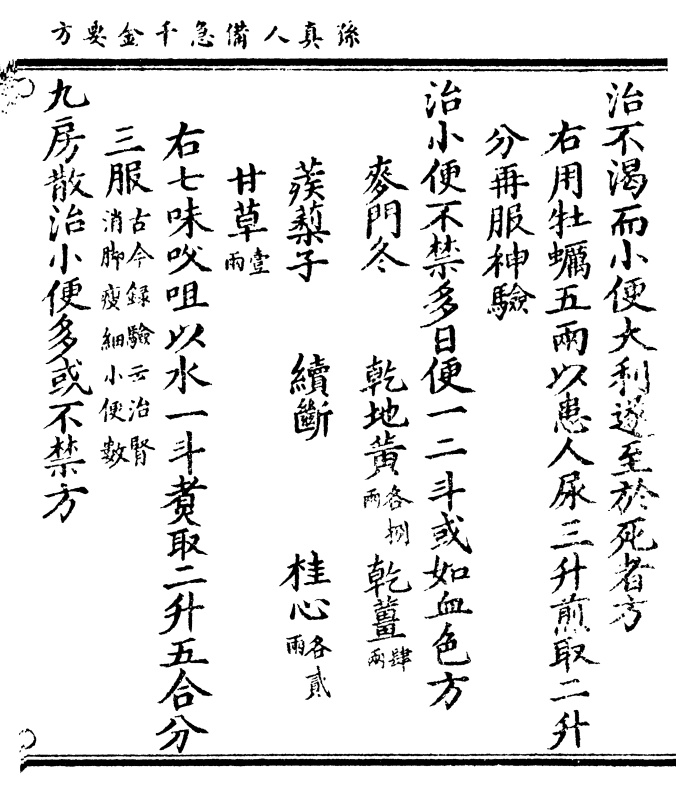 孫真人備急千金要方
治不渴而小便大利遂至於死者方
右用牡蠣五兩以患人尿三升煎取二升
分再服神驗
治小便不禁多日便一二斗或如血色方
麥門冬 乾地黃各捌兩 乾薑肆兩
蒺蔾子 續斷 桂心各貳兩
甘草壹兩
右七味㕮咀以水一斗煑取二升五合分
三服古今録驗云治腎消脚瘦細小便數
九房散治小便多或不禁方